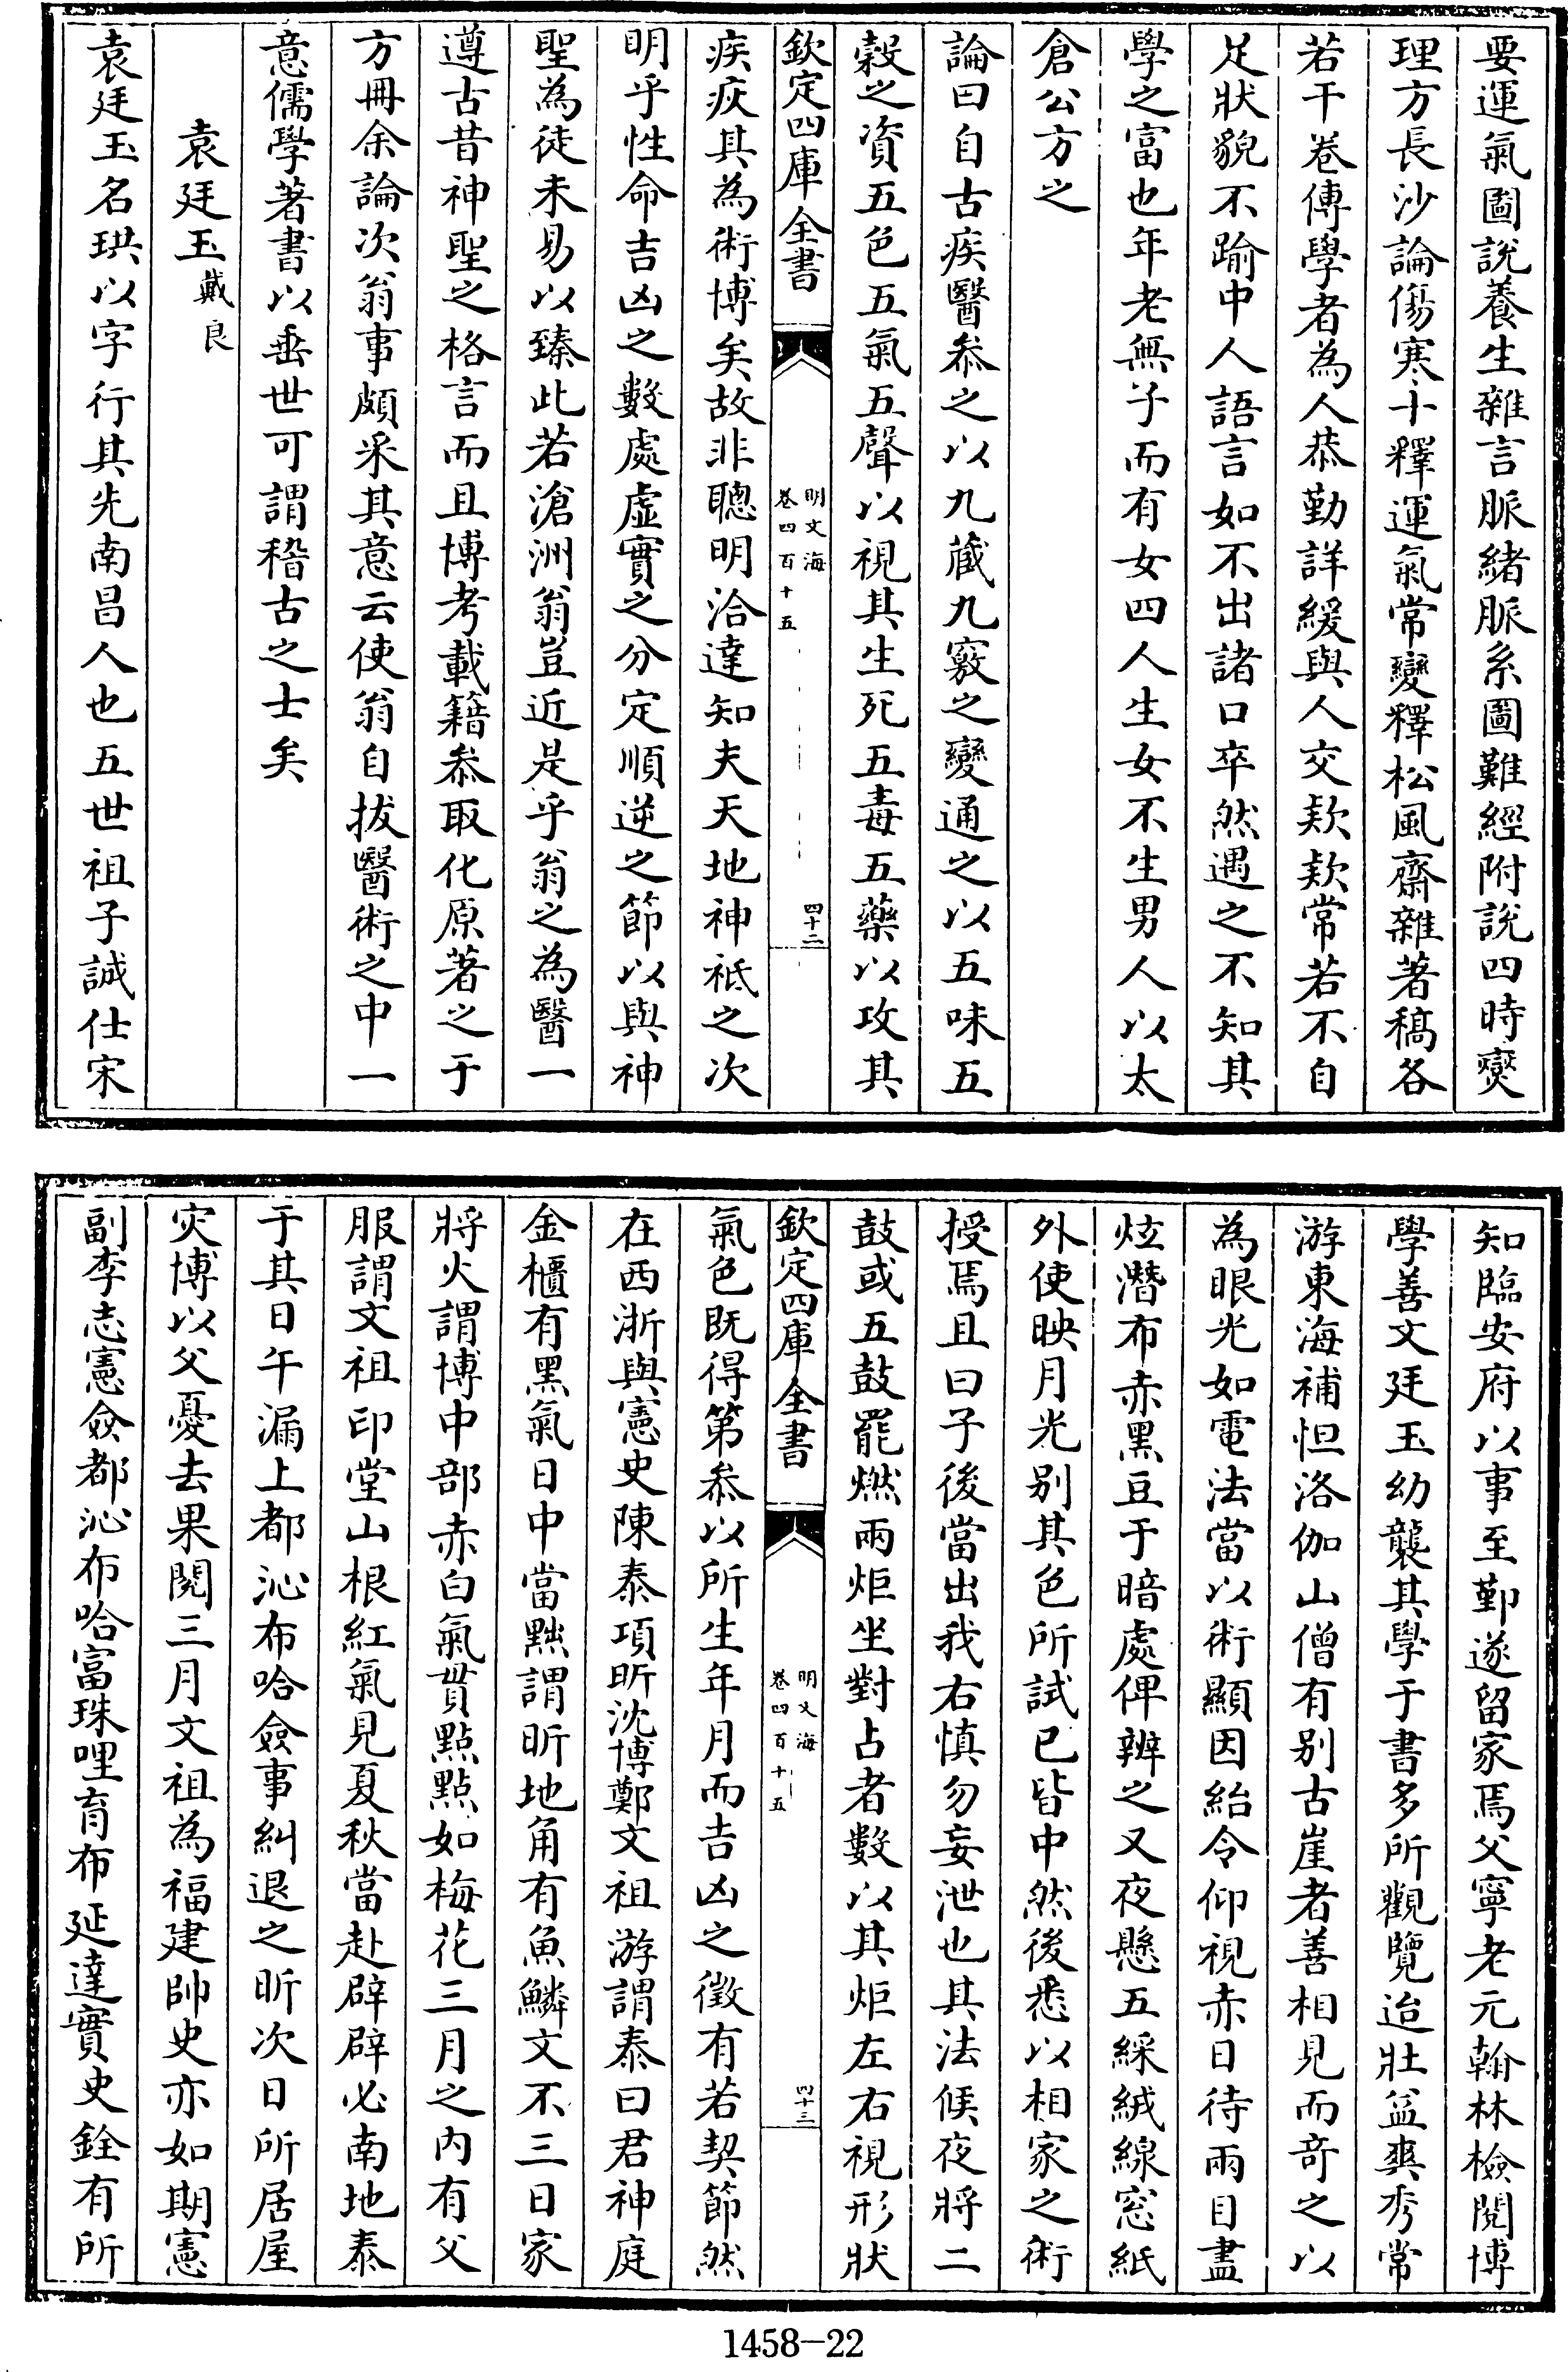 要運氣圖說養生雜言脈緒脈系圖難經附說四時爕
理方長沙論傷寒十釋運氣常變釋松風齋雜著稿各
若干卷傳學者為人恭勤詳緩與人交欵欵常若不自
足狀貌不踰中人語言如不出諸口卒然遇之不知其
學之富也年老無子而有女四人生女不生男人以太
倉公方之
論曰自古疾醫叅之以九藏九竅之變通之以五味五
穀之資五色五氣五聲以視其生死五毒五藥以攻其
欽定四庫全書
明文海
卷四百十五
四十二
疾疢其為術博矣故非聰明洽達知夫天地神祗之次
明乎性命吉凶之數處虛實之分定順逆之節以與神
聖為徒未易以臻此若滄洲翁豈近是乎翁之為醫一
遵古昔神聖之格言而且博考載籍叅取化原著之于
方冊余論次翁事頗采其意云使翁自拔醫術之中一
意儒學著書以垂世可謂稽古之士矣
袁廷玉戴良
袁廷玉名珙以字行其先南昌人也五世祖子誠仕宋
知臨安府以事至鄞遂留家焉父寧老元翰林檢閱博
學善文廷玉幼襲其學于書多所觀覽迨壯益爽秀常
游東海補怛洛伽山僧有别古崖者善相見而奇之以
為眼光如電法當以術顯因紿令仰視赤日待兩目盡
炫潛布赤黑豆于暗處俾辨之又夜懸五綵絨線窓紙
外使映月光别其色所試已皆中然後悉以相家之術
授焉且曰子後當出我右慎勿妄泄也其法候夜將二
鼓或五鼓罷燃兩炬坐對占者數以其炬左右視形狀
欽定四庫全書
明文海
卷四百十五
四十三
氣色既得第叅以所生年月而吉凶之徵有若契節然
在西浙與憲史陳泰項昕沈博鄭文祖游謂泰曰君神庭
金櫃有黑氣日中當黜謂昕地角有魚鱗文不三日家
將火謂博中部赤白氣貫點點如梅花三月之内有父
服謂文祖印堂山根紅氣見夏秋當赴辟辟必南地泰
于其日午漏上都沁布哈僉事糾退之昕次日所居屋
灾博以父憂去果閱三月文祖為福建帥史亦如期憲
副李志憲僉都沁布哈富珠哩育布延達實史銓有所
1458-22